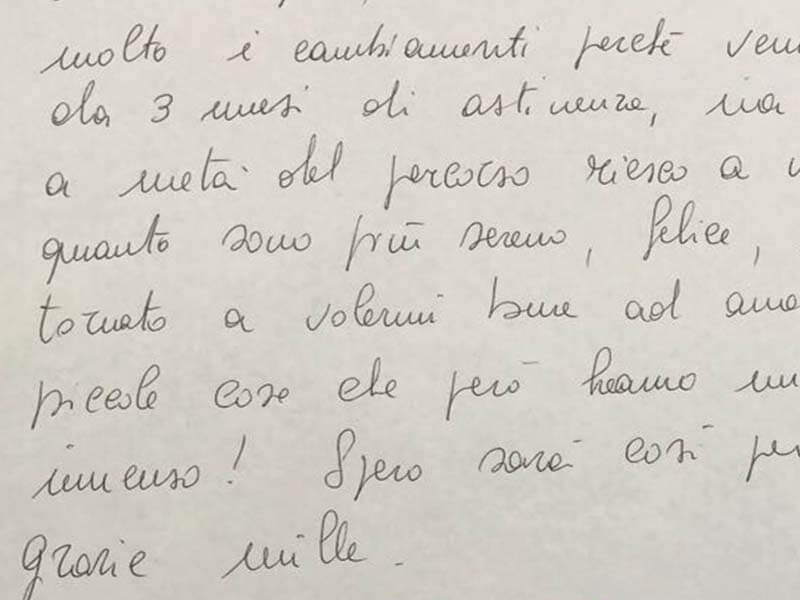 molto i cambiamenti perchè ven
da 3 mesi di astinenza, ma
a metà del percorso riesco a v
quanto sono più sereno, felice,
tornato a volermi bene ad ama
piccole cose che però hanno un
immenso! Spero sarà così per
Grazie mille.